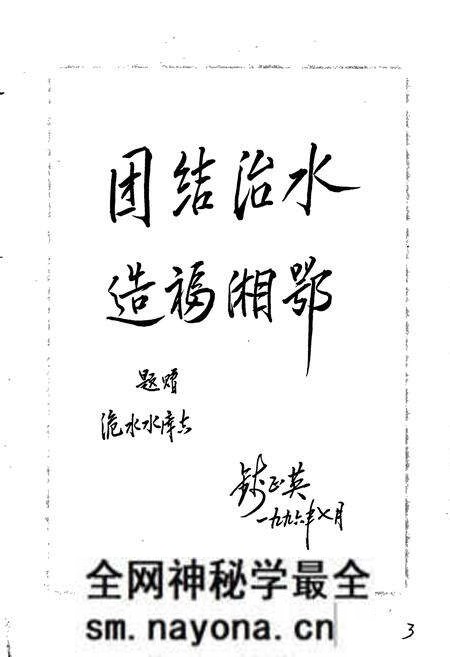 团结治水
造福湘鄂
题赠
洈水水库志
钱正英
一九九六年七月
全网神秘学最全
sm.nayona.cn
3